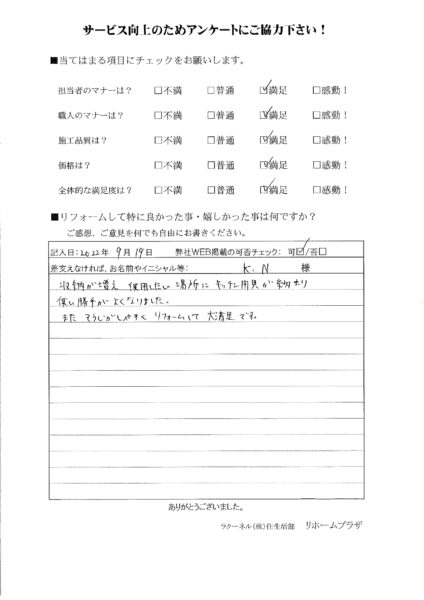 サービス向上のためアンケートにご協力下さい！
■当てはまる項目にチェックをお願いします。
担当者のマナーは？ □不満 □普通 ☑満足 □感動！
職人のマナーは？ □不満 □普通 ☑満足 □感動！
施工品質は？ □不満 □普通 ☑満足 □感動！
価格は？ □不満 □普通 ☑満足 □感動！
全体的な満足度は？ □不満 □普通 ☑満足 □感動！
■リフォームして特に良かった事・嬉しかった事は何ですか？
ご感想、ご意見を何でも自由にお書きください。
記入日：2022年 9月 19日 弊社WEB掲載の可否チェック： 可☑/否□
差支えなければ、お名前やイニシャル等： K.N 様
収納が増え 使用したい 場所に キッチン用具が 納まり
使い勝手が よくなりました。
また そうじがしやすく リフォームして 大満足 です。
ありがとうございました。
ラクーネル（株）住生活部 リホームプラザ